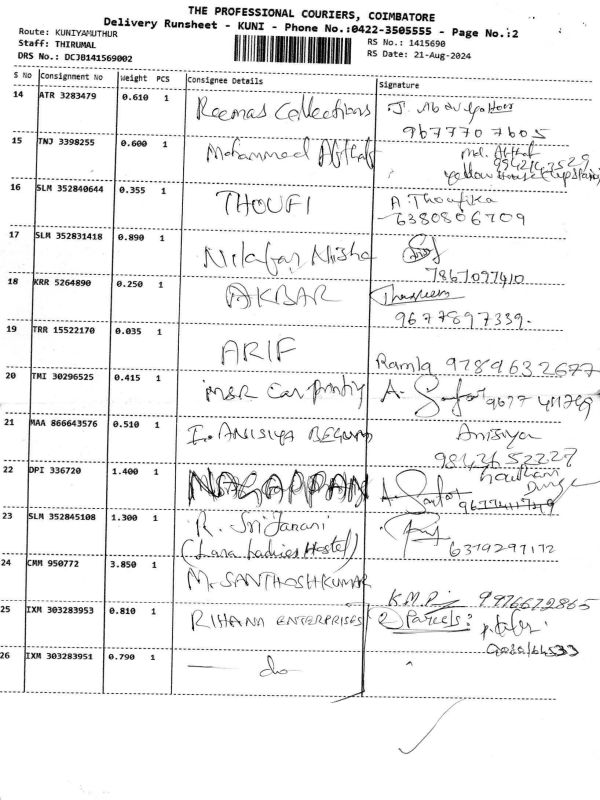 THE PROFESSIONAL COURIERS, COIMBATORE
Delivery Runsheet - KUNI - Phone No.:0422-3505555 - Page No.:2
Route: KUNIYAMUTHUR
Staff: THIRUMAL
DRS No.: DCJB141569002
RS No.: 1415690
RS Date: 21-Aug-2024
S No Consignment No Weight PCS Consignee Details Signature
14 ATR 3283479 0.610 1 Reemas Collections J. Abdul
967770 7605
15 TNJ 3398255 0.600 1 Mohammeed Afthab Md. Afthab
16 SLM 352840644 0.355 1 THOUFI A Thoufika
6380806709
17 SLM 352831418 0.890 1 Nilafar Nisha
7867097410
18 KRR 5264890 0.250 1 AKBAR
9677897339.
19 TRR 15522170 0.035 1 ARIF Ramla 9789632677
20 TMI 30296525 0.415 1 MSR Car Printing A.
21 MAA 866643576 0.510 1 I. ANISIYA BEGUM Anisiya
22 DPI 336720 1.400 1 NAGAPPAN A.
23 SLM 352845108 1.300 1 R. Sri Janani
(Lara Ladies Hostel) 6379297172
24 CMM 950772 3.850 1 M. SANTHOSHKUMAR
K.M.P 9976672865
25 IXM 303283953 0.810 1 RIHANA ENTERPRISES (2) Parcels:
26 IXM 303283951 0.790 1 do